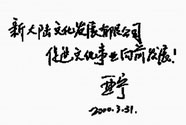 新大陆文化发展有限公司
促进文化事业向前发展!
2000.3.31.